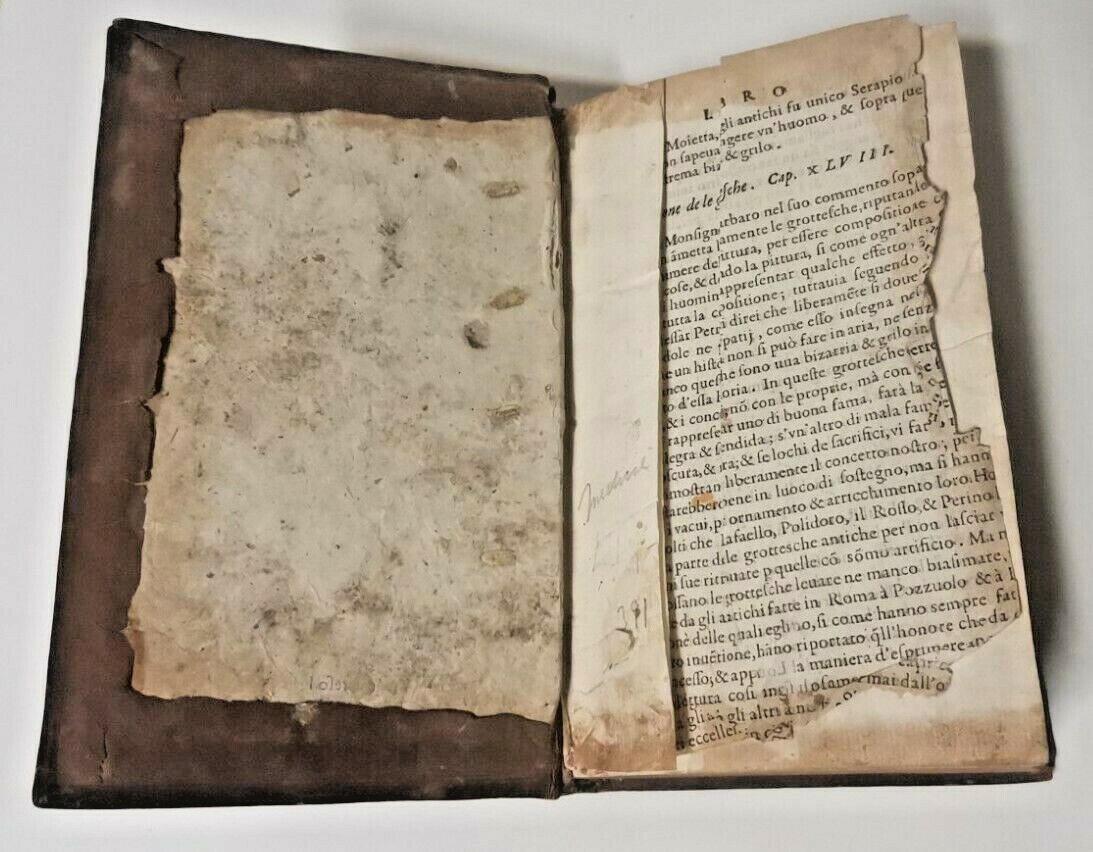 391
LIBRO
Moietta, gli antichi fu unico Serapio
n sapeua agere vn'huomo, & sopra sue
trema & grilo.
one de le sche. Cap. XLVIII.
Monsign arbaro nel suo commento sopa
amente le grottesche, riputando
mere de ittura, per essere compositione
cose, & do la pittura, si come ogn'altra
i huomin appresentar qualche effetto,
tutta la c ositione; tuttauia seguendo
essar Petr direi che liberamēte si doue
dole ne patij, come esso insegna nel
e un hist non si può fare in aria, ne senz
nco ques he sono una bizarria & grilo in
to d'essa oria. In queste grottesche
& i con nō con le proprie, mà con
rappresē ar uno di buona fama, farà la
egra & s endida; s'vn'altro di mala fam
scura, & ra; & se lochi de sacrifici, vi far
mostran liberamente il concetto nostro; per
arebbero ene in luoco di sostegno, ma si hann
vacui, p ornamento & arricchimento loro. Ho
olti che afaello, Polidoro, il Rosso, & Perino
parte d le grottesche antiche per non lasciar
n sue rit uate p quelle cō sōmo artificio. Ma n
ossano le grottesche leuare ne manco biasimate,
e da gli antichi fatte in Roma à Pozzuolo & à
onè delle quali egl no, si come hanno sempre fat
inuētione, hāno riportato q̄ll'honore che da
cesso; & app la maniera d'esprimere
capric
gettura così ing osamet mai dall'o
gli gli altri
eccellet.